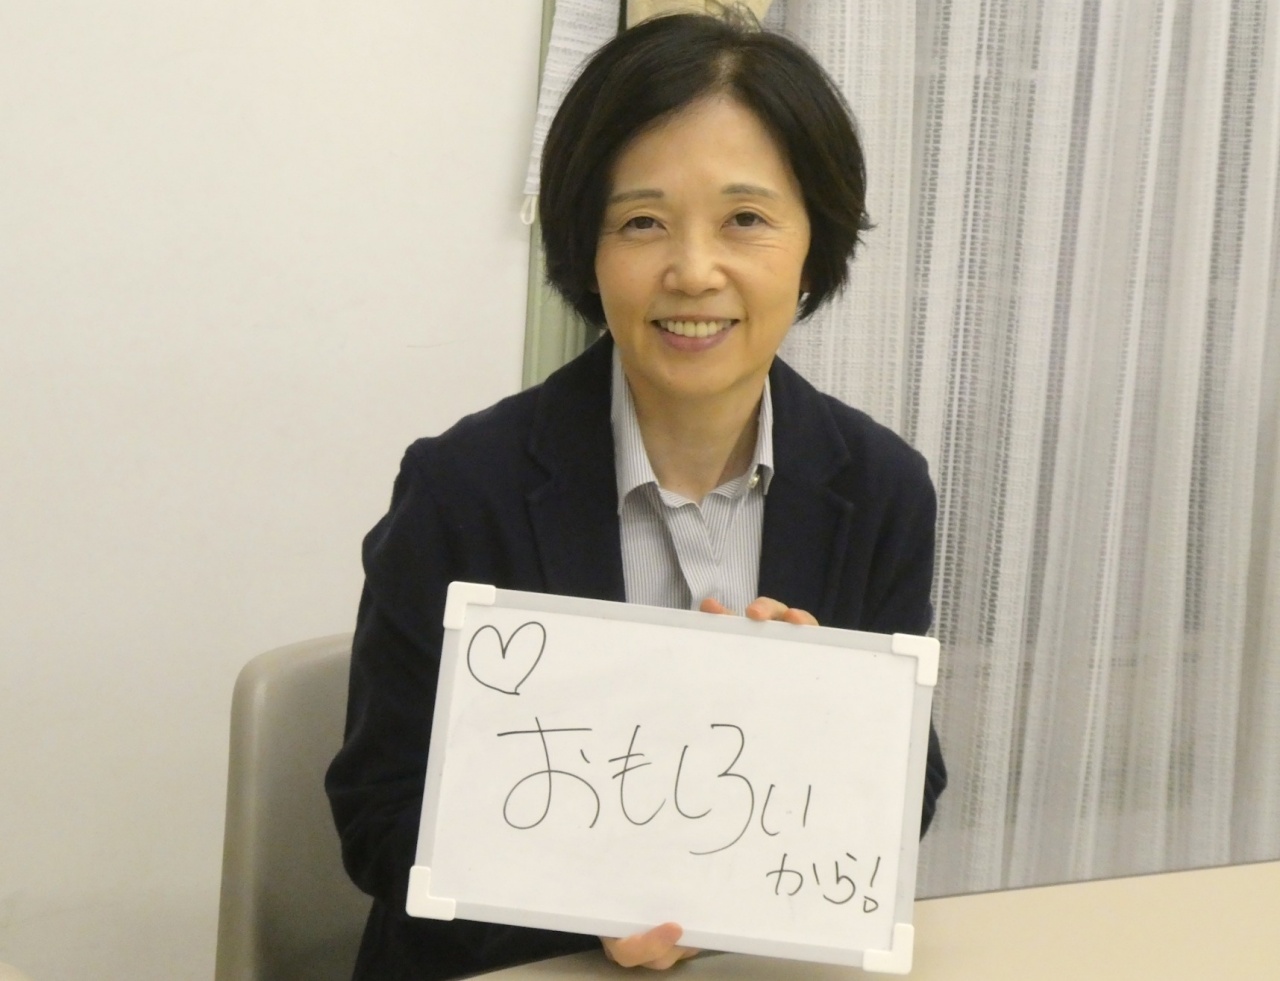 おもしろい
から!